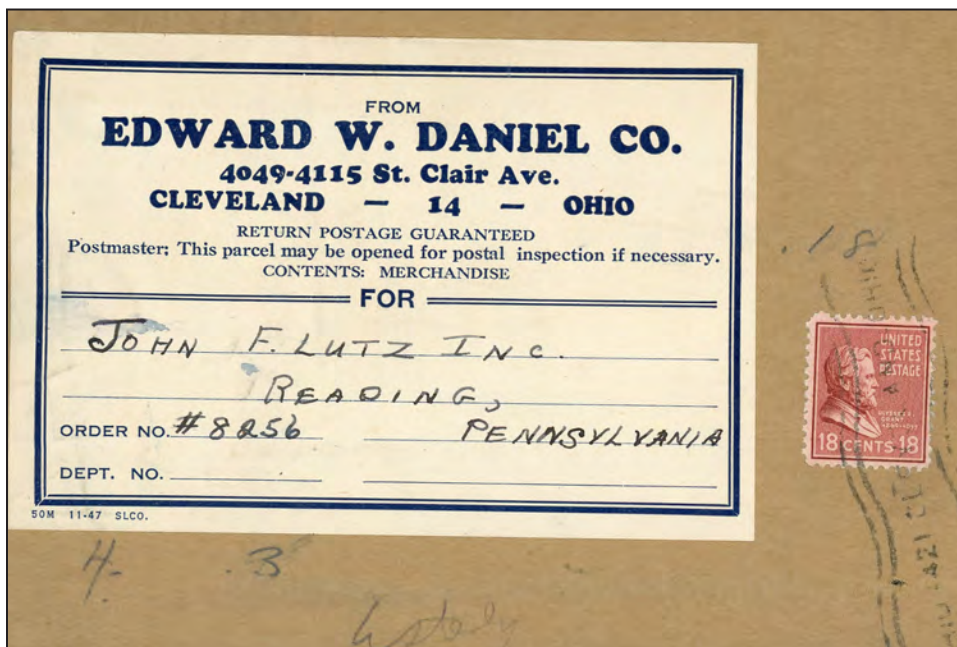 FROM
EDWARD W. DANIEL CO.
4049-4115 St. Clair Ave.
CLEVELAND — 14 — OHIO
RETURN POSTAGE GUARANTEED
Postmaster: This parcel may be opened for postal inspection if necessary.
CONTENTS: MERCHANDISE
FOR
JOHN F. LUTZ INC.
READING,
ORDER NO. #8256 PENNSYLVANIA
DEPT. NO.
50M 11-47 SLCO.
.18
UNITED
STATES
POSTAGE
ULYSSES S
GRANT
18 CENTS 18
4. .3